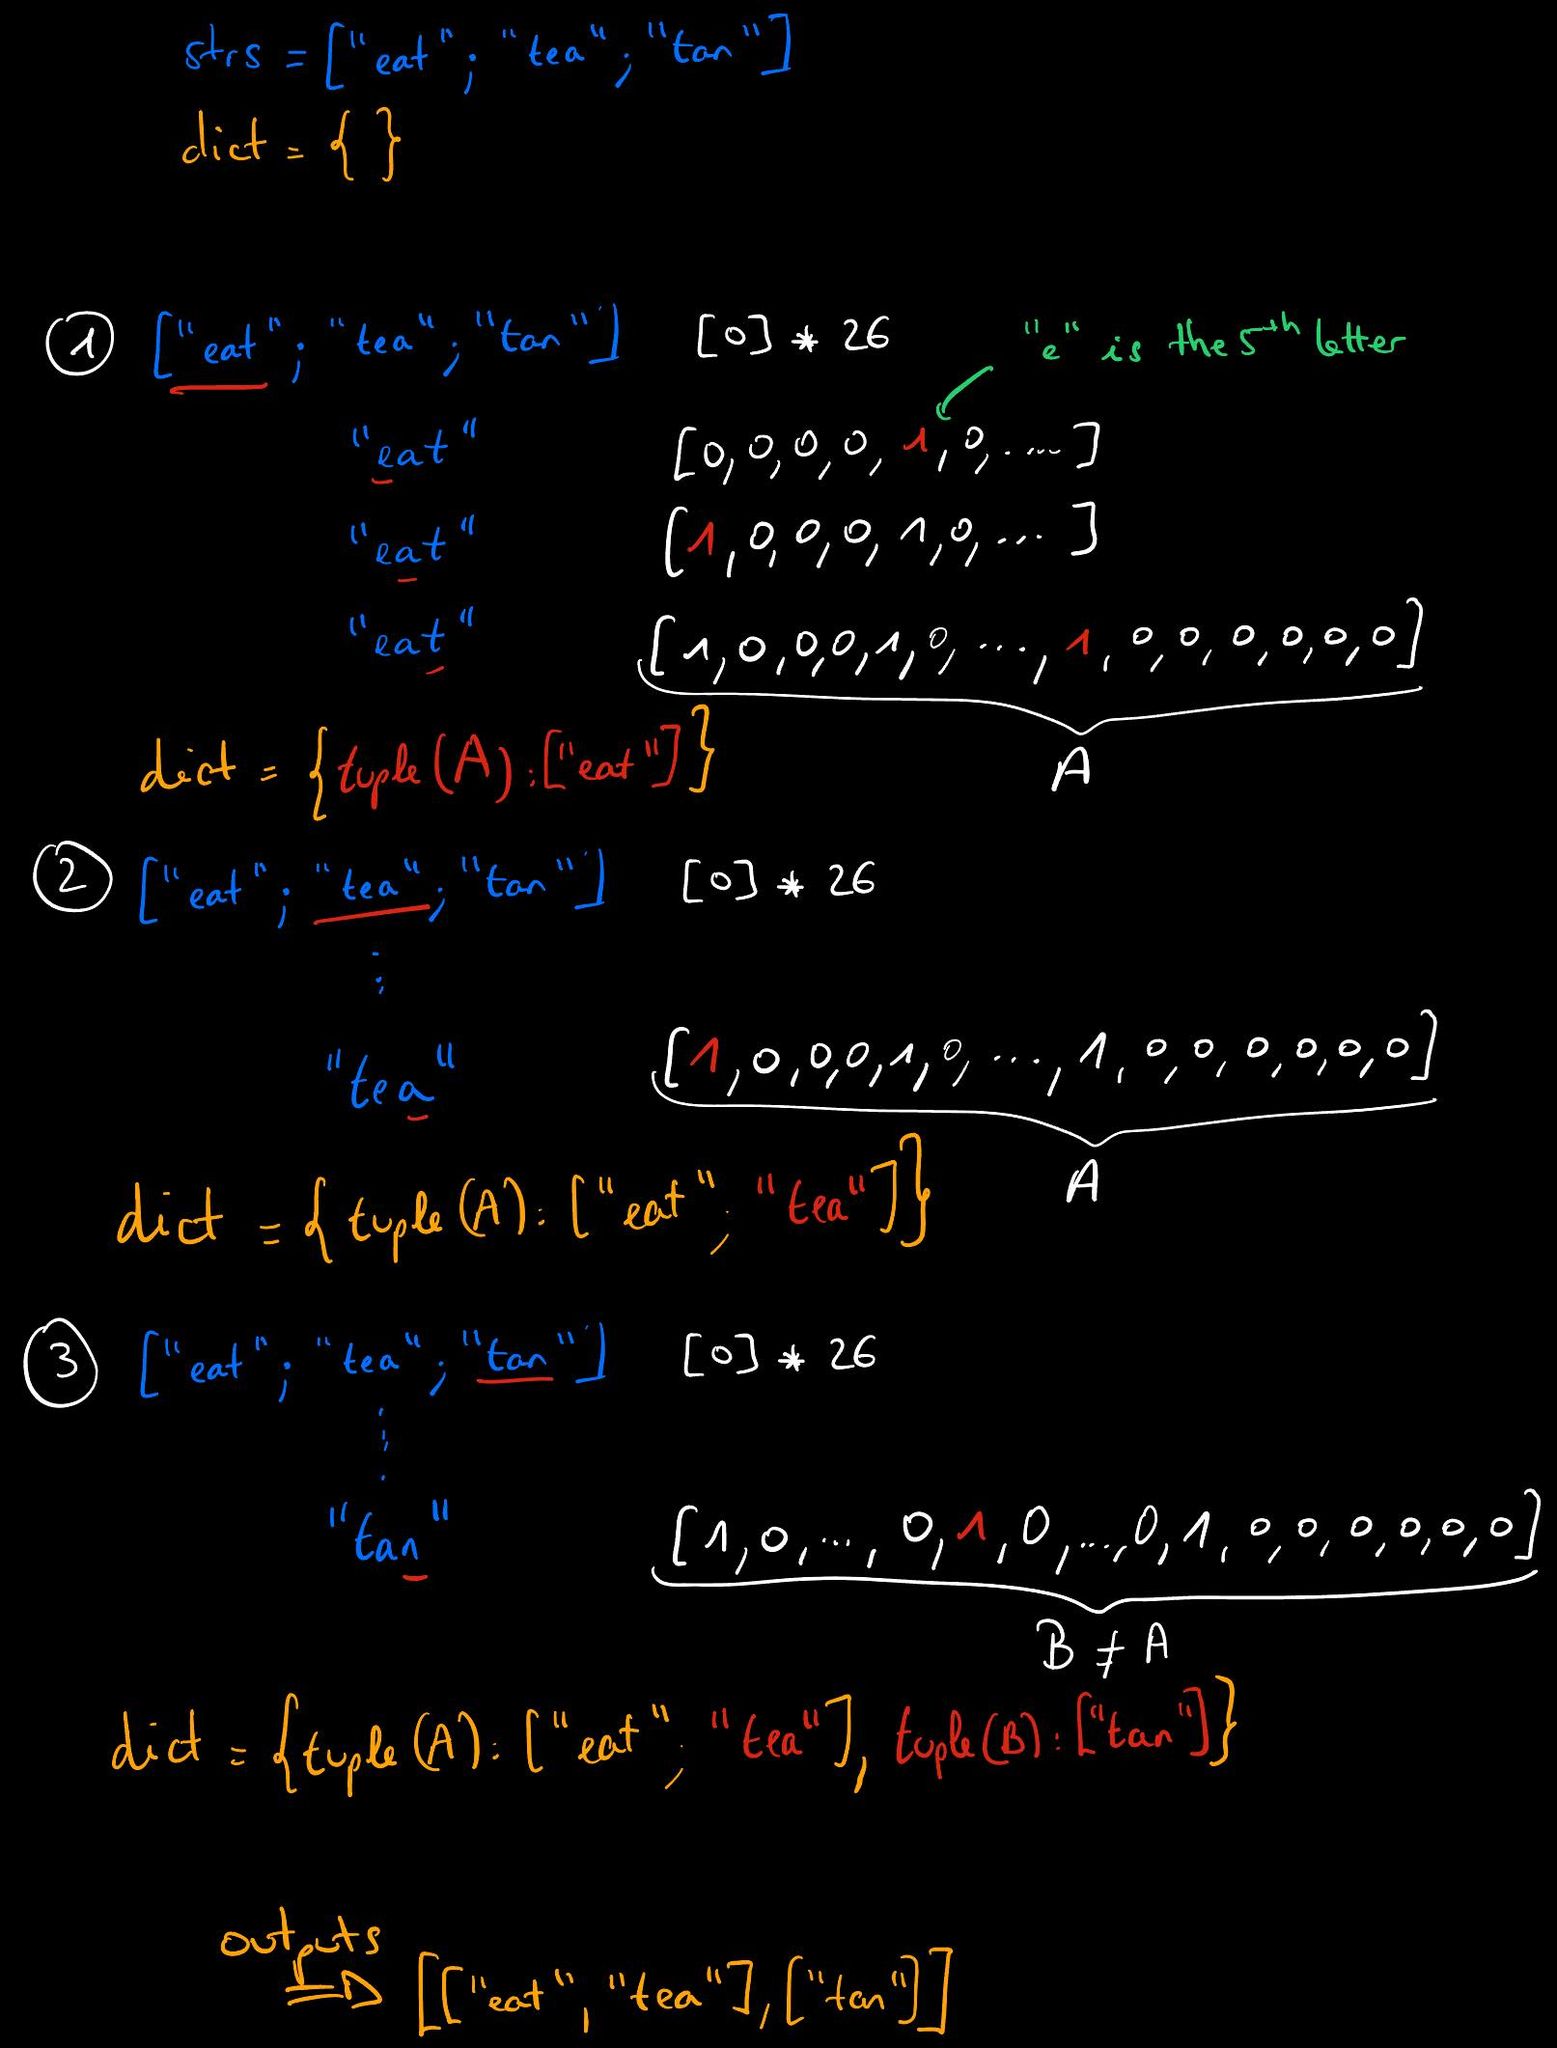 strs = ["eat"; "tea"; "tan"]
dict = { }
① ["eat"; "tea"; "tan"] [0] * 26 "e" is the 5th letter
"eat" [0, 0, 0, 0, 1, 0, .....]
"eat" [1, 0, 0, 0, 1, 0, ... ]
"eat" [1, 0, 0, 0, 1, 0, ..., 1, 0, 0, 0, 0, 0, 0]
A
dict = {tuple(A) : ["eat"]}
② ["eat"; "tea"; "tan"] [0] * 26
"tea" [1, 0, 0, 0, 1, 0, ..., 1, 0, 0, 0, 0, 0, 0]
A
dict = {tuple(A): ["eat"; "tea"]}
③ ["eat"; "tea"; "tan"] [0] * 26
"tan" [1, 0, ..., 0, 1, 0, ..., 0, 1, 0, 0, 0, 0, 0, 0]
B ≠ A
dict = {tuple(A): ["eat"; "tea"], tuple(B): ["tan"]}
outputs
⇒ [["eat", "tea"], ["tan"]]